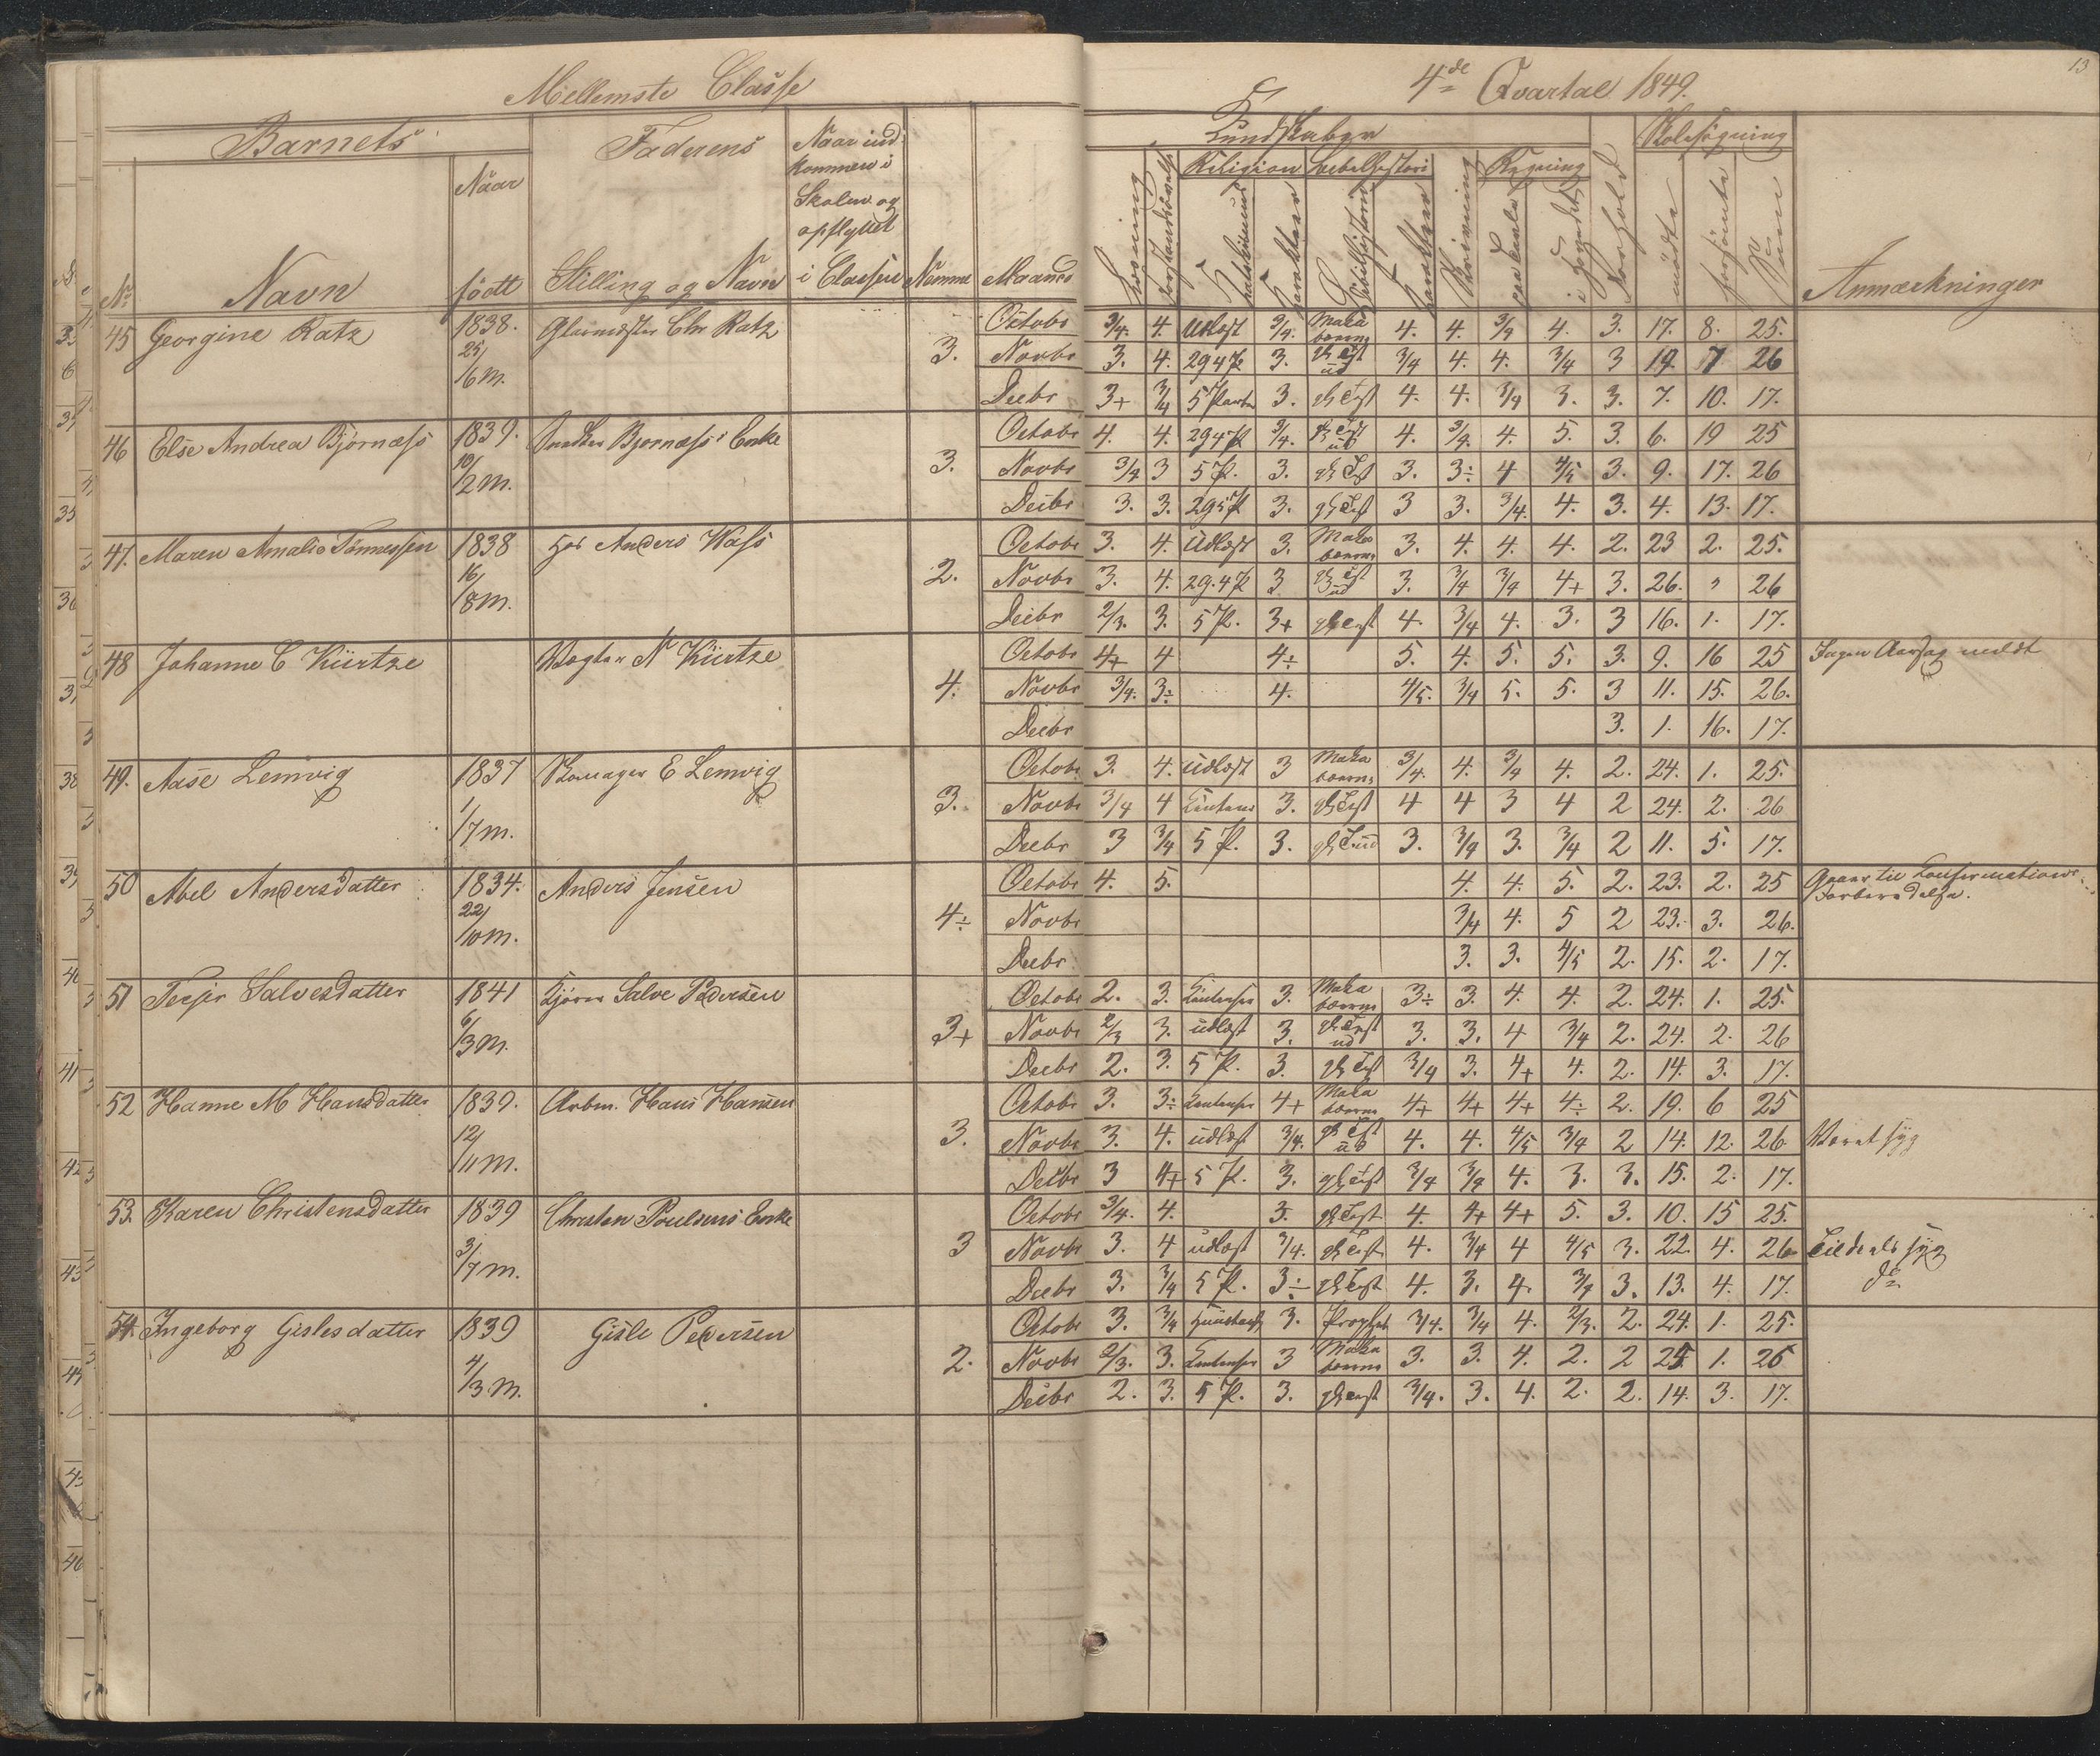 Mellemste Classe
4de Qvartal 1849.
13
Barnets
Faderens
Naar ind
kommen i
Skolen og
opflyttet
i Classen
Kundskaber
Skolesøgning
Religion
Bibelhistori
Regning
No
Navn
Naar
født
Stilling og Navn
Nummer
Maaned
Læsning
Forstandsøvelse
Karakter
Bibelhistorie
Karakter
Skrivning
paa Tavle
i Hovedet
Forhold
mødte
forsømte
Sum
Anmærkninger
45 Georgine Katz 1838. 25/6 m. Glarmester Chr Katz 3.
Octobr 3/4. 4. Udlæst 3/4. Makabæerne 4. 4. 3/4 4. 3. 17. 8. 25.
Novbr 3. 4. 2g 4 P 3. 3/4 4. 4. 3/4 3 19 7 26
Decbr 3+ 3/4 5 Parten 3. 4. 4. 3/4 3. 3. 7. 10. 17.
46 Else Andrea Bjørnæss 1839. 10/2 m. Bjørnæss's Enke 3.
Octobr 4. 4. 2g 4 P 3/4. 4. 3/4. 4. 5. 3. 6. 19 25
Novbr 3/4 3 5 P. 3. 3. 3÷ 4 4/5 3. 9. 17. 26
Decbr 3. 3. 2g 5 P 3. 3 3. 3/4. 4. 3. 4. 13. 17.
47. Maren Amalie Tønnessen 1838 16/8 m. hos Anders Wass 2.
Octobr 3. 4. Udlæst 3. Makabæerne 3. 4. 4. 4. 2. 23 2. 25.
Novbr 3. 4. 2g. 4 P 3 3. 3/4 3/4 4+ 3. 26. " 26
Decbr 2/3. 3. 5 P. 3+ 4. 3/4 4. 3. 3 16. 1. 17.
48 Johanne C Kürtze Vægter N Kürtze 4.
Octobr 4+ 4 4÷ 5. 4. 5. 5. 3. 9. 16 25 Ingen Aarsag meldt
Novbr 3/4. 3÷ 4. 4/5. 3/4 5. 5. 3 11. 15. 26.
Decbr 3. 1. 16. 17.
49. Aase Lemvig 1837 1/7 m. E Lemvig 3.
Octobr 3. 4. Udlæst 3 Makabæerne 3/4. 4. 3/4 4. 2. 24. 1. 25.
Novbr 3/4 4 3. 4 4 3 4 2 24. 2. 26
Decbr 3 3/4 5 P. 3. 3. 3/4 3. 3/4 2 11. 5. 17.
50 Abel Andersdatter 1834. 22/10 m. Anders Jensen 4÷
Octobr 4. 5. 4. 4. 5. 2. 23. 2. 25 Gaaer til Confirmations
Forberedelse.
Novbr 3/4 4. 5 2 23. 3. 26.
Decbr 3. 3. 4/5 2. 15. 2. 17.
51 Terjer Salvesdatter 1841 6/3 m. Salve Pedersen 3+
Octobr 2. 3. 3. Makabæerne 3÷ 3. 4. 4. 2. 24. 1. 25.
Novbr 2/3 3. udlæst 3. 3. 3. 4 3/4 2. 24. 2. 26
Decbr 2. 3. 5 P. 3. 3/4 3. 4+ 4. 2. 14. 3. 17.
52 Hanne M Hansdatter 1839. 12/11 m. Arbm. Hans Hansen 3.
Octobr 3. 3÷ 4+ Makabæerne 4+ 4+ 4+ 4÷ 2. 19. 6 25
Novbr 3. 4. udlæst 3/4. 4. 4. 4/5 3/4 2 14. 12. 26 Været syg
Decbr 3 4+ 5 P. 3. 3/4 3/4 4. 3. 3. 15. 2. 17.
53. Karen Christensdatter 1839 3/7 m. Christen Poulsens Enke 3
Octobr 3/4. 4. 3. 4. 4+ 4+ 5. 3. 10. 15 25.
Novbr 3. 4 udlæst 3/4. 4. 3/4 4 4/5 3. 22. 4. 26 Tildels syg
Decbr 3. 3/4 5 P. 3÷ 4. 3. 4. 3/4 3. 13. 4. 17. do
54. Ingeborg Gislesdatter 1839 4/3 m. Gisle Pedersen 2.
Octobr 3. 3/4 3. 3/4. 3/4 4. 2/3. 2. 24. 1. 25.
Novbr 2/3. 3. 3 Makabæerne 3. 3. 4. 2. 2 25 1. 26
Decbr 2. 3. 5 P. 3. 3/4. 3. 4. 2. 2. 14. 3. 17.